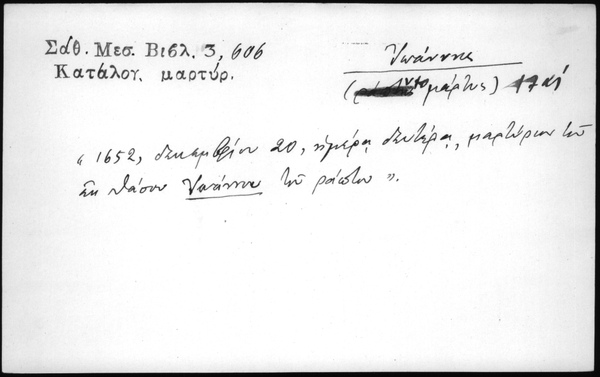 Σάθ. Μεσ. Βιβλ. 3, 606
Κατάλογ. μαρτύρ.
Ἰωάννης
(νεομάρτυς)
„ 1652, δεκεμβρίου 20, ἡμέρᾳ δευτέρᾳ, μαρτύριον τοῦ
ἐκ Θάσου Ἰωάννου τοῦ ῥάπτου ".